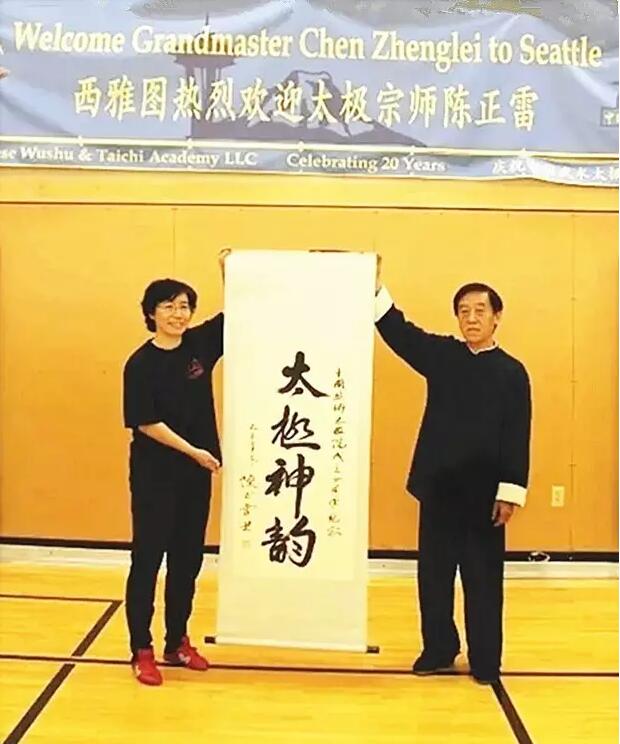 Welcome Grandmaster Chen Zhenglei to Seattle
西雅图热烈欢迎太极宗师陈正雷
ese Wushu & Taichi Academy LLC
Celebrating 20 Years
庆祝
太极
太極神韵